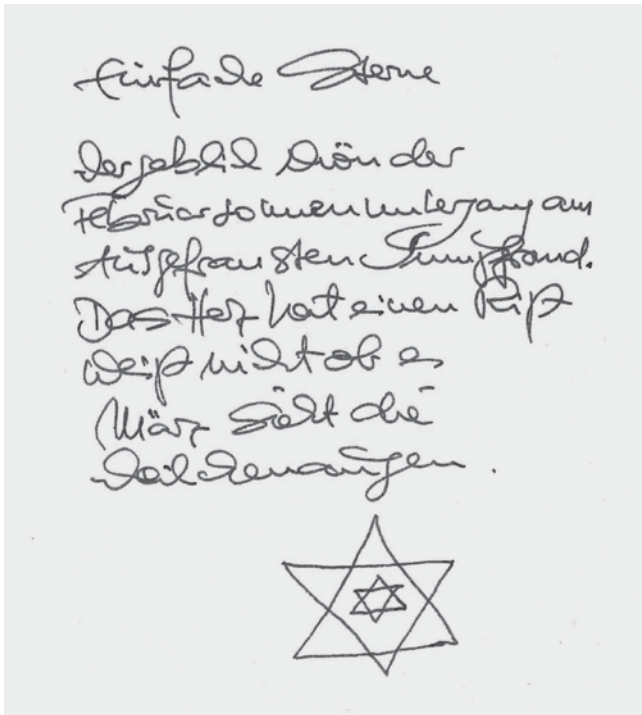 Einfache Sterne
Vergeblich schön der
Februarsonnenuntergang am
Ausgefransten Sumpfrand.
Das Herz hat einen Riß
Weiß nicht ob es
März sieht die
Veilchenaugen.